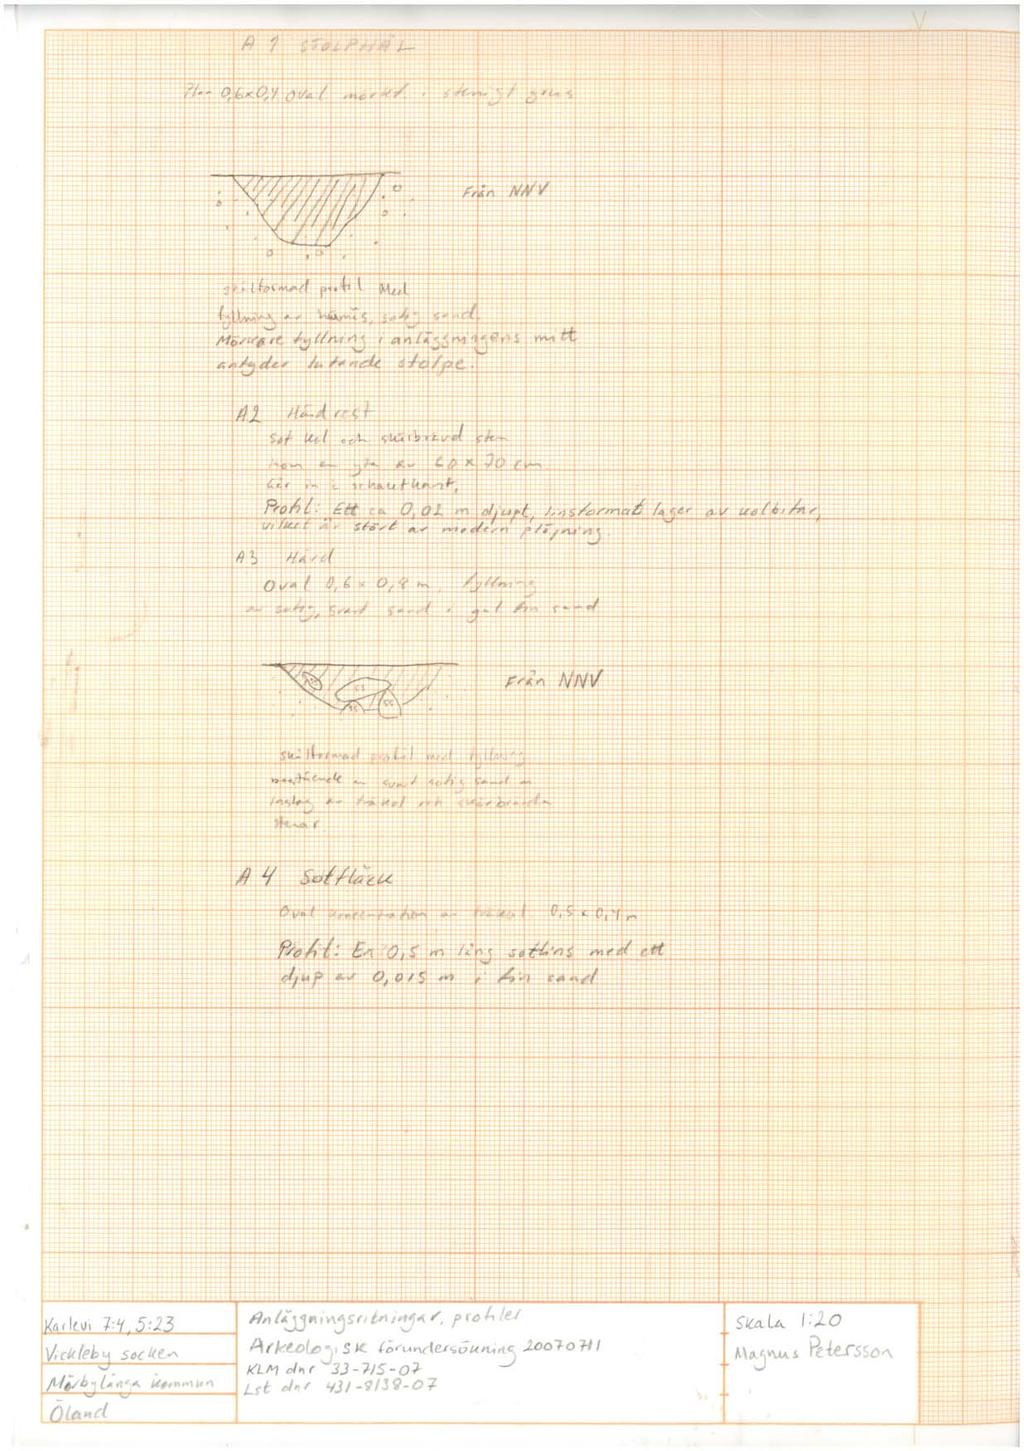 A 1 STOLPHÅL
Plan 0,6x0,4 oval mörkf. i stenigt grus
Från NNV
skålformad profil Med
fyllning av humös, sotig sand.
Mörkare fyllning i anläggningens mitt
antyder lutande stolpe.
A2 Härdrest
sot kol och skärbränd sten
inom en yta av 60 x 70 cm.
Går in i schaktkant.
Profil: Ett ca 0,02 m djupt, linsformat lager av kolbitar,
vilket är stört av modern plöjning.
A3 Härd
Oval 0,6 x 0,8 m, fyllning
av sotig, svart sand i gul fin sand
Från NNV
skålformad profil med fyllning
bestående av svart sotig sand m
inslag av träkol och skärbrända
stenar
A 4 Sotfläck
Oval koncentration av träkol 0,5 x 0,4 m
Profil: En 0,5 m lång sotlins med ett
djup av 0,015 m i fin sand
Karlevi 7:4, 5:23
Vickleby socken
Mörbylånga kommun
Öland
Anläggningsritningar, profiler
Arkeologisk förundersökning 20070711
KLM dnr 33-715-07
Lst dnr 431-8138-07
Skala 1:20
Magnus Petersson